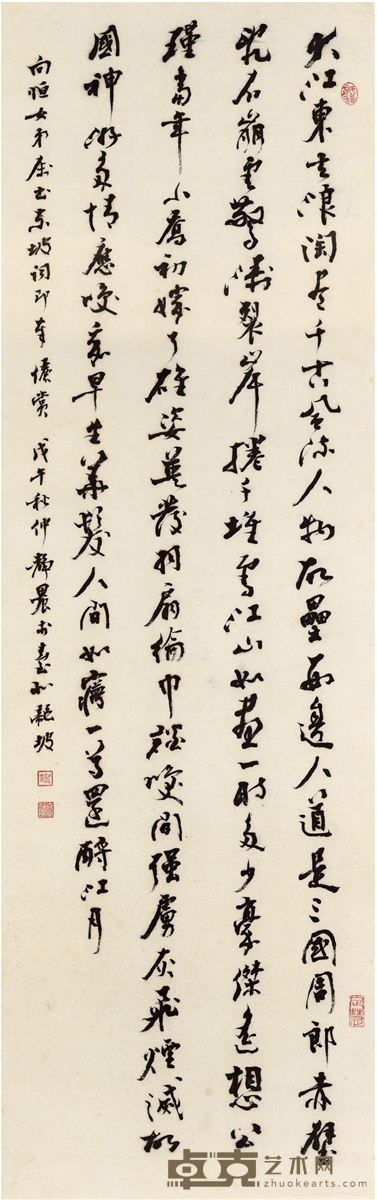 大江東去浪淘盡千古風流人物故壘西邊人道是三國周郎赤壁
亂石崩雲驚濤裂岸捲千堆雪江山如畫一時多少豪傑遙想公
瑾當年小喬初嫁了雄姿英發羽扇綸巾談笑間強虜灰飛煙滅故
國神游多情應笑我早生華髮人間如夢一尊還酹江月
向恒女弟屬書東坡詞即奉賞 戊午秋仲靜農於臺北龍坡
卓克艺术网
www.zhuokearts.com